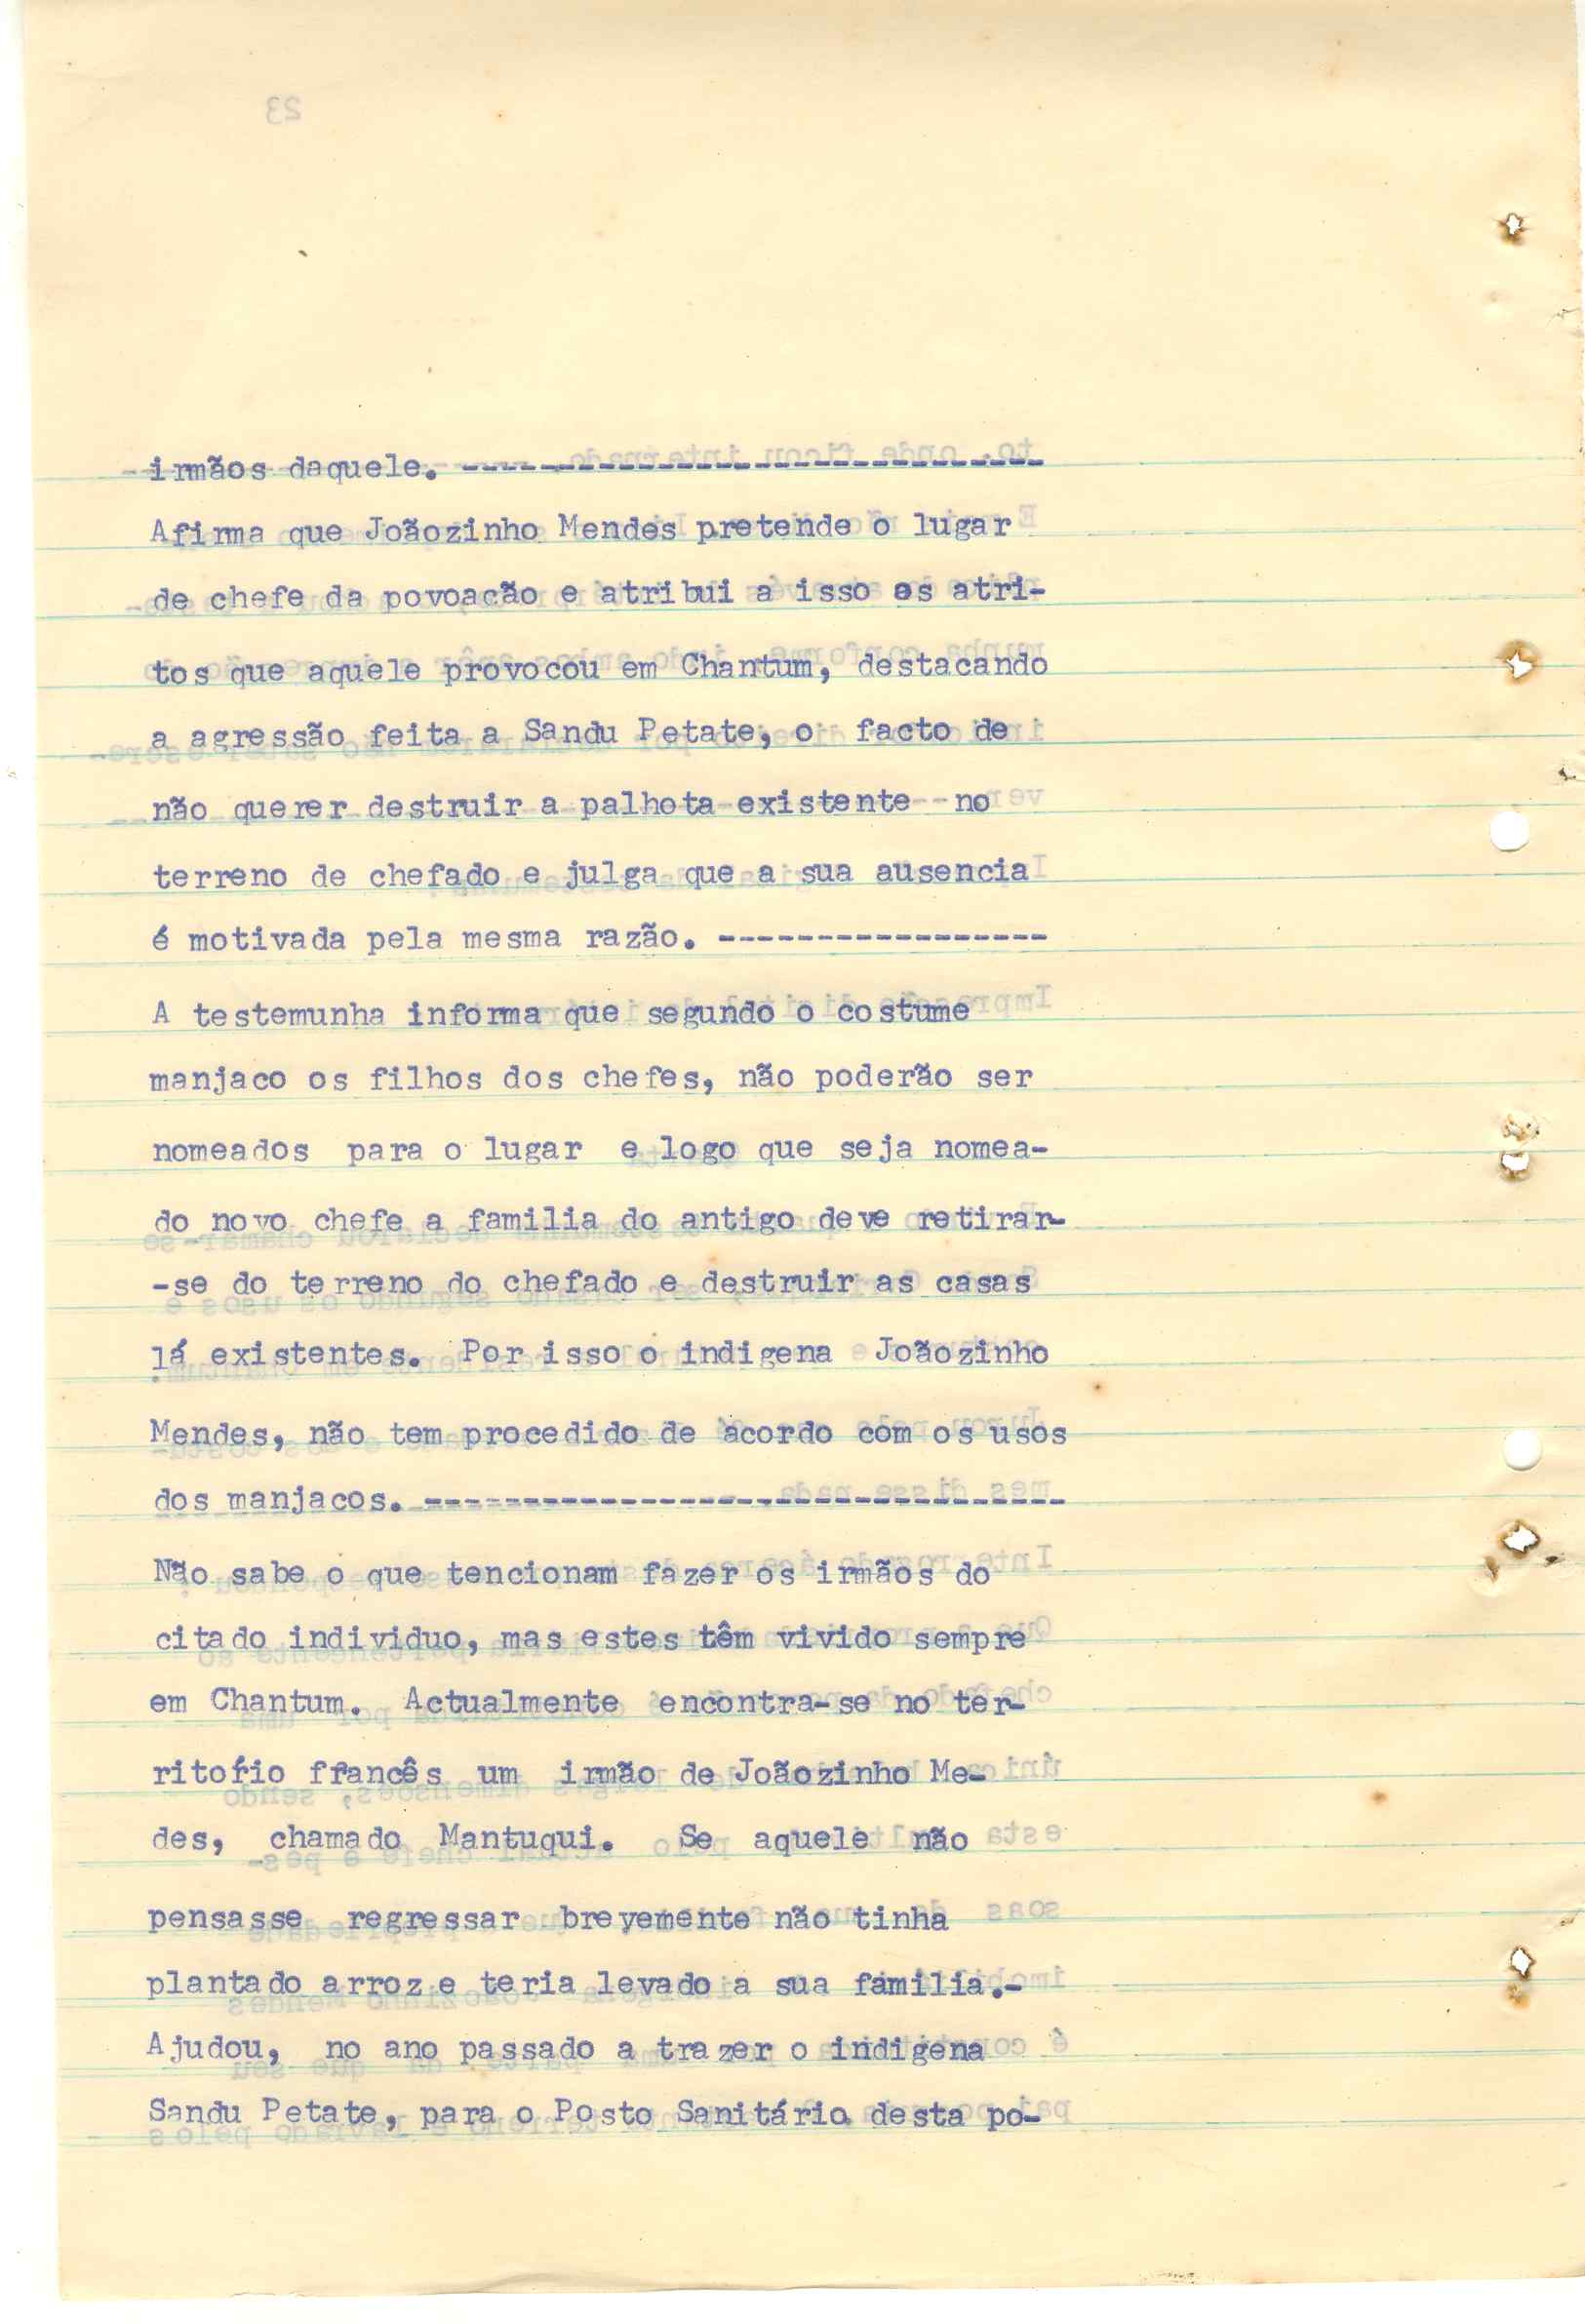 irmãos daquele. ------------------------------
Afirma que Joãozinho Mendes pretende o lugar
de chefe da povoacão e atribui a isso os atri-
tos que aquele provocou em Chantum, destacando
a agressão feita a Sandu Petate, o facto de
não querer destruir a palhota existente no
terreno de chefado e julga que a sua ausencia
é motivada pela mesma razão. -----------------
A testemunha informa que segundo o costume
manjaco os filhos dos chefes, não poderão ser
nomeados para o lugar e logo que seja nomea-
do novo chefe a familia do antigo deve retirar-
-se do terreno do chefado e destruir as casas
lá existentes. Por isso o indigena Joãozinho
Mendes, não tem procedido de acordo com os usos
dos manjacos. ---------------------------------
Não sabe o que tencionam fazer os irmãos do
citado individuo, mas estes têm vivido sempre
em Chantum. Actualmente encontra-se no ter-
ritório francês um irmão de Joãozinho Me-
des, chamado Mantuqui. Se aquele não
pensasse regressar brevemente não tinha
plantado arroz e teria levado a sua familia.-
Ajudou, no ano passado a trazer o indigena
Sandu Petate, para o Posto Sanitário desta po-